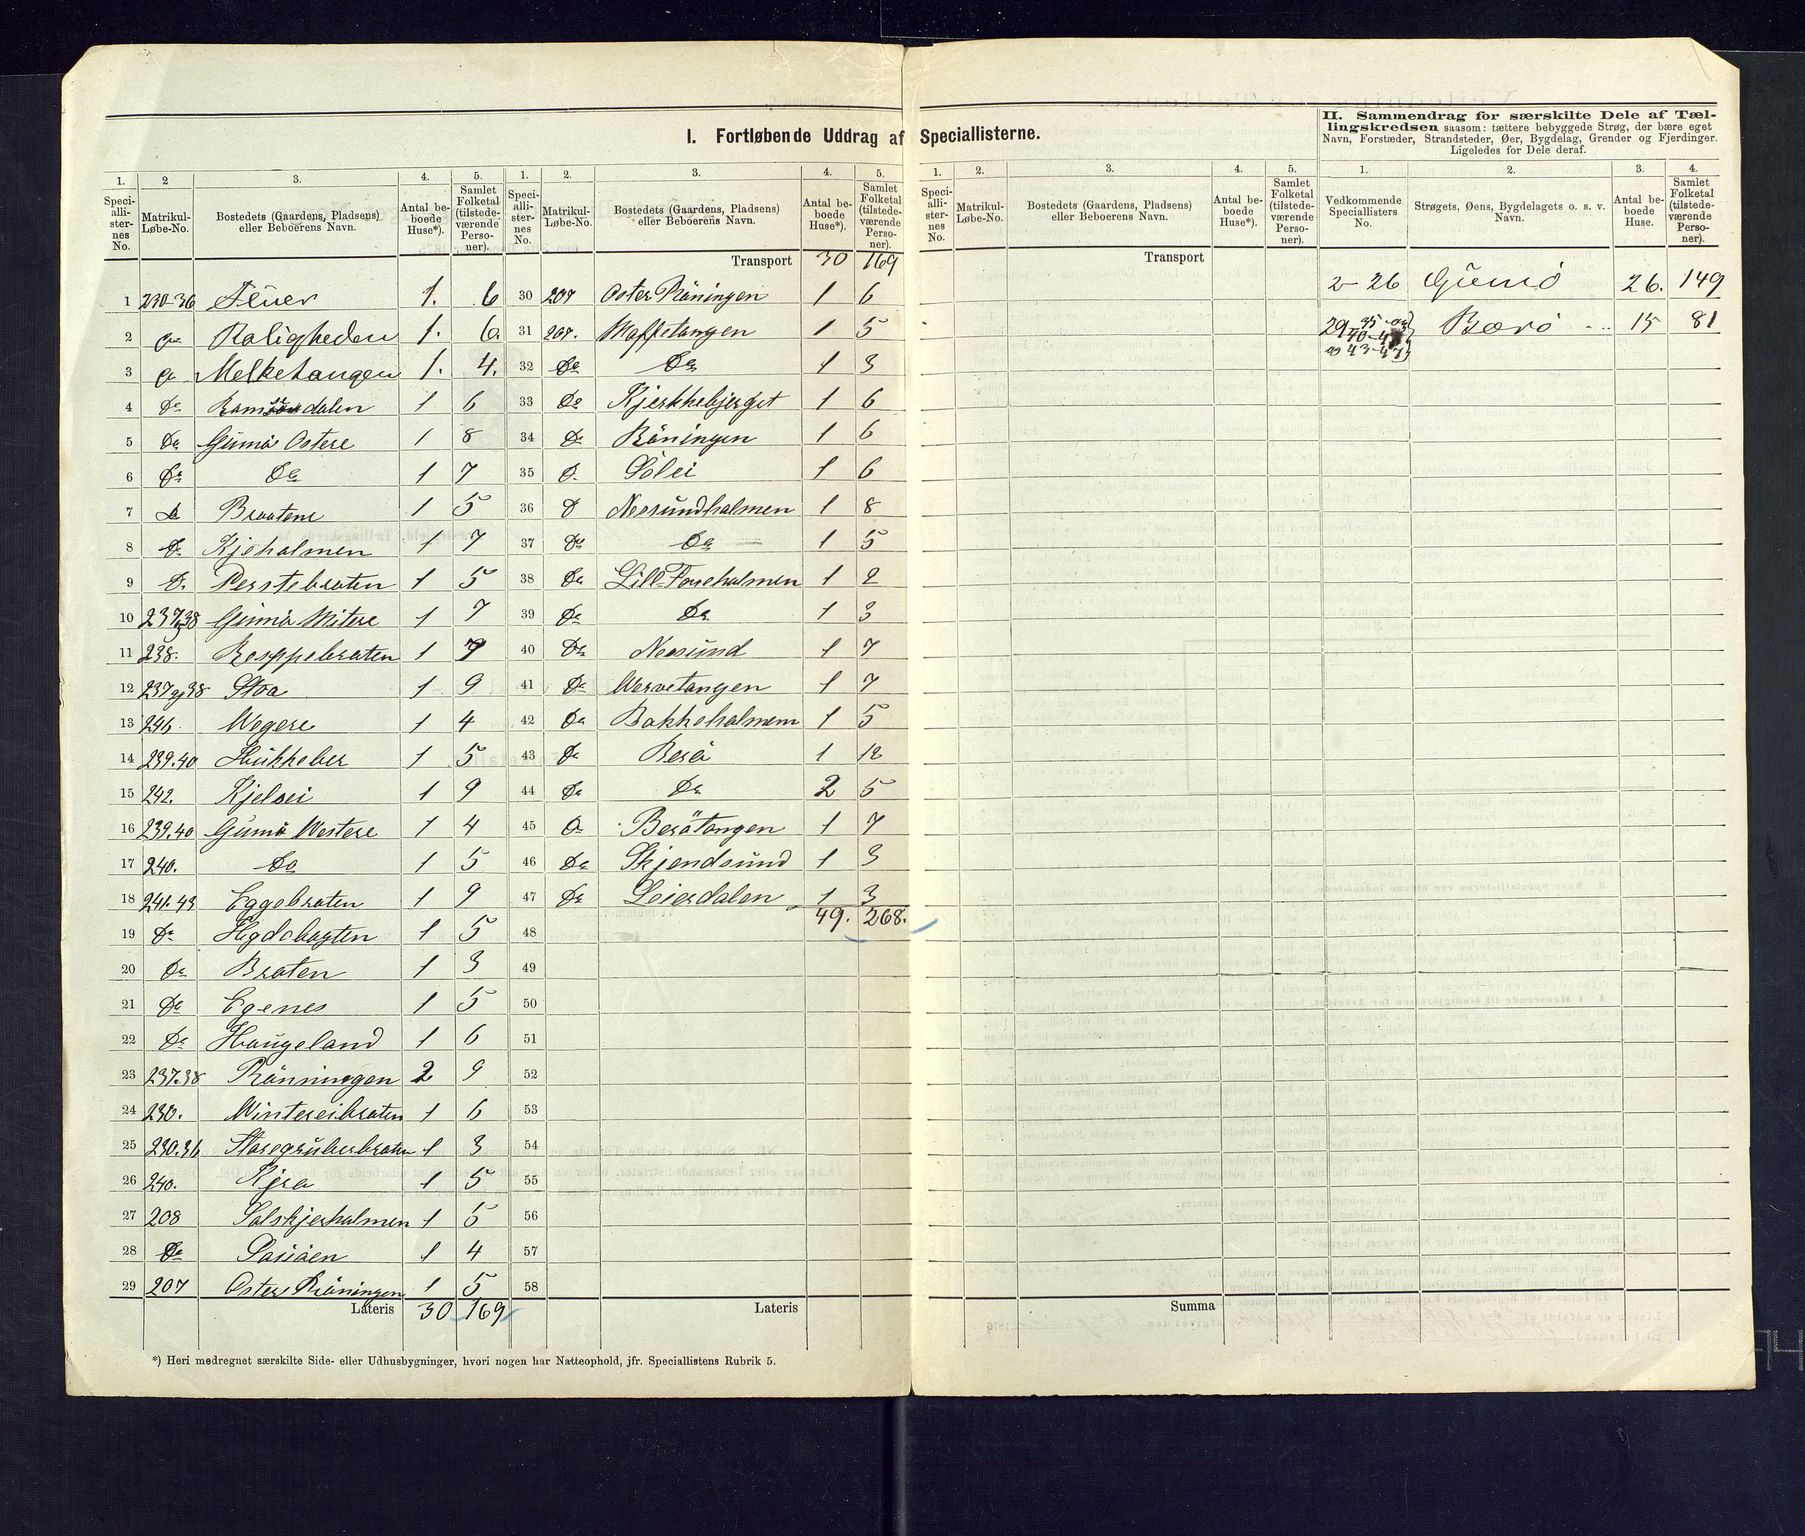 I. Fortløbende Uddrag af Speciallisterne.
II. Sammendrag for særskilte Dele af Tællingskredsen saasom: tættere bebyggede Strøg, der bære eget
Navn, Forstæder, Strandsteder, Øer, Bygdelag, Grender og Fjerdinger.
Ligeledes for Dele deraf.
1. 2 3. 4. 5. 1. 2. 3. 4. 5. 1. 2. 3. 4. 5. 1. 2. 3. 4.
Speciallisternes No. Matrikul-Løbe-No. Bostedets (Gaardens, Pladsens) eller Beboerens Navn. Antal beboede Huse*). Samlet Folketal (tilstedeværende Personer).
Speciallisternes No. Matrikul-Løbe-No. Bostedets (Gaardens, Pladsens) eller Beboerens Navn. Antal beboede Huse*). Samlet Folketal (tilstedeværende Personer).
Speciallisternes No. Matrikul-Løbe-No. Bostedets (Gaardens, Pladsens) eller Beboerens Navn. Antal beboede Huse*). Samlet Folketal (tilstedeværende Personer).
Vedkommende Speciallisters No. Strøgets, Øens, Bygdelagets o. s. v. Navn. Antal beboede Huse. Samlet Folketal (tilstedeværende Personer).
1 230-36 1. 6
2 Roligheden 1. 6.
3 Melketangen 1. 4.
4 Do 1 6
5 Do Gumø Østere 1 8
6 Do Do 1 7
7 Do Braatene 1 5
8 Do Kjeholmen 1 7
9 D. Perstebraten 1 5
10 237 38 Gumø Mitere 1 7
11 238. Roppebraten 1 7
12 237 og 38 Stoa 1 9
13 246. Wegere 1 4
14 239.40 1 5
15 242. 1 9
16 239.40 Gumø Westere 1 4
17 240. Do 1 5
18 241.43 Eggebraten 1 9
19 Do 1 5
20 Do Braten 1 3
21 Do Egenes 1 5
22 Do Haugeland 1 6
23 237.38 Rönningen 2 9
24 230. Wintereibraten 1 6
25 230.36 1 3
26 240. Kjra 1 5
27 208 Solskjerholmen 1 5
28 Do 1 4
29 207 Østere Röningen 1 5
Lateris 30 169
Transport 30 169
30 207 Øster Röningen 1 6
31 207. 1 5
32 Do Do 1 3
33 Do Kjerkkebjerget 1 6
34 Do Röningen 1 6
35 D. Solei 1 6
36 D Nesundholmen 1 8
37 Do Do 1 5
38 Do Lill-Foreholmen 1 2
39 Do Do 1 3
40 Do Nesund 1 7
41 Do Wervetangen 1 7
42 Do Bakkeholmem 1 5
43 Do Berö 1 12
44 Do Do 2 5
45 Berötangen 1 7
46 Do Skjendsund 1 3
47 Do Leierdalen 1 3
48 49. 268.
49
50
51
52
53
54
55
56
57
58
Lateris
Transport
Summa
2-26 Gumö 26. 149
29 35 Bærö 15 81
40-41
og 43-47
*) Heri medregnet særskilte Side- eller Udhusbygninger, hvori nogen har Natteophold, jfr. Speciallistens Rubrik 5.